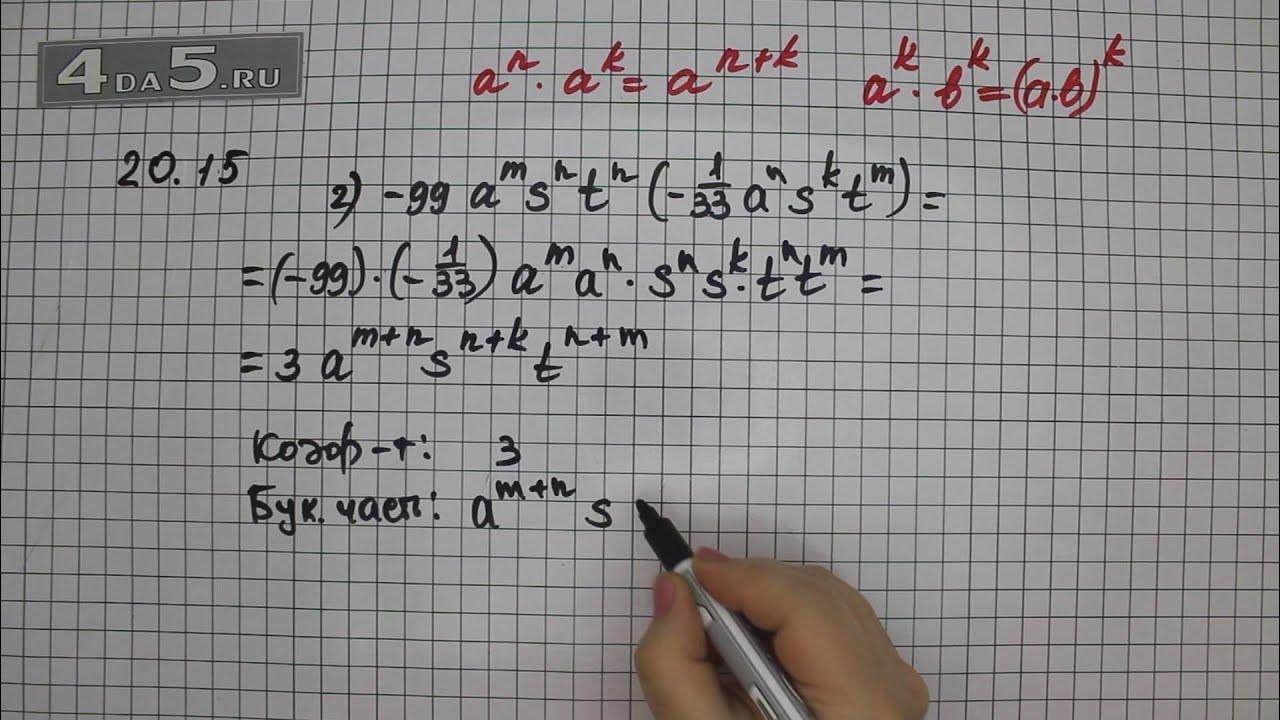 4DA5.RU
aⁿ · aᵏ = aⁿ⁺ᵏ aᵏ · вᵏ = (a·в)ᵏ
20.15
г) -99 aᵐsⁿtⁿ (-1/33 aⁿsᵏtᵐ) =
= (-99)·(-1/33) aᵐaⁿ · sⁿsᵏ · tⁿtᵐ =
= 3 aᵐ⁺ⁿsⁿ⁺ᵏtⁿ⁺ᵐ
Коэф-т: 3
Бук. част: aᵐ⁺ⁿ s